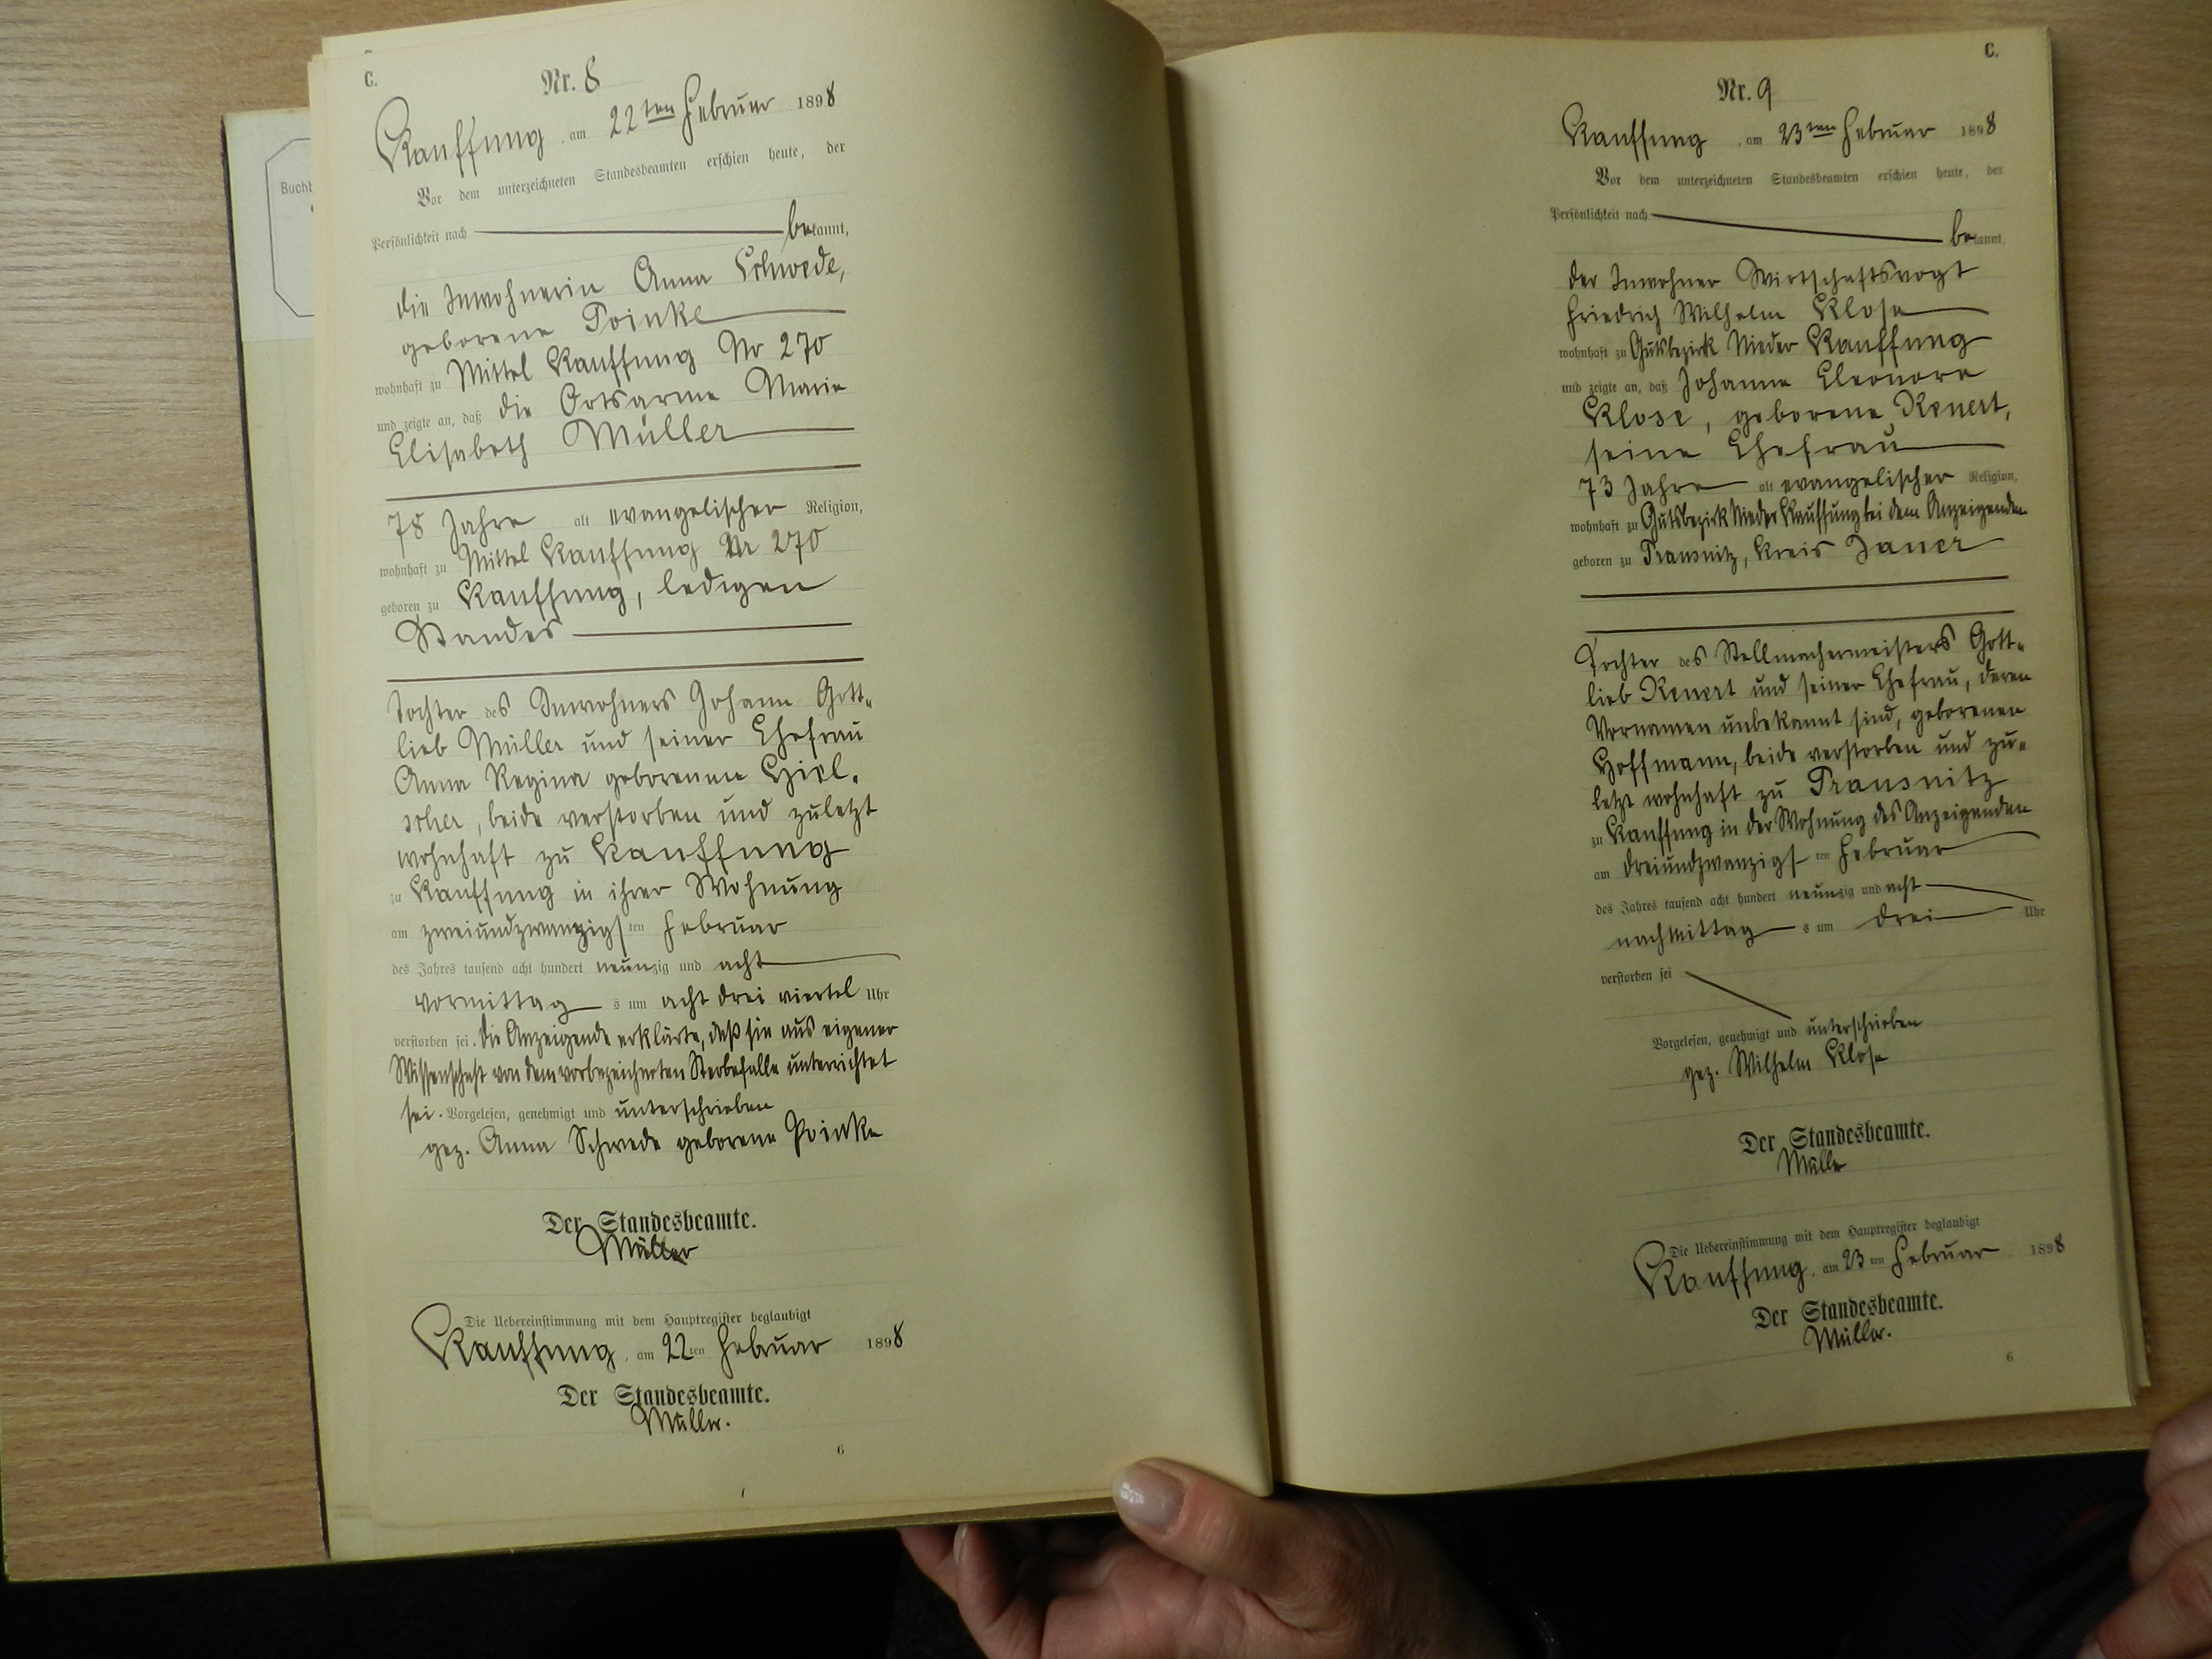 Buchb
C.
Nr. 8
Kauffung, am 22ten Februar 1898
Vor dem unterzeichneten Standesbeamten erschien heute, der
Persönlichkeit nach bekannt,
die Inwohnerin Anna Schwede,
geborene Poinke
wohnhaft zu Mittel Kauffung No 270
und zeigte an, daß die Ortsarme Marie
Elisabeth Müller
78 Jahre alt evangelischer Religion,
wohnhaft zu Mittel Kauffung Nr 270
geboren zu Kauffung, ledigen
Standes
Tochter des Inwohners Johann Gott-
lieb Müller und seiner Ehefrau
Anna Regina geborenen Hiel-
scher, beide verstorben und zuletzt
wohnhaft zu Kauffung
zu Kauffung in ihrer Wohnung
am zweiundzwanzigsten Februar
des Jahres tausend acht hundert neunzig und acht
vormittags um acht drei viertel Uhr
verstorben sei. Die Anzeigende erklärte, daß sie aus eigener
Wissenschaft von dem vorbezeichneten Sterbefalle unterrichtet
sei. Vorgelesen, genehmigt und unterschrieben
gez. Anna Schwede geborene Poinke
Der Standesbeamte.
Müller
Die Uebereinstimmung mit dem Hauptregister beglaubigt
Kauffung, am 22ten Februar 1898
Der Standesbeamte.
Müller.
6
C.
Nr. 9
Kauffung, am 23ten Februar 1898
Vor dem unterzeichneten Standesbeamten erschien heute, der
Persönlichkeit nach bekannt,
der Inwohner Wirtschaftsvogt
Friedrich Wilhelm Klose
wohnhaft zu Gutsbezirk Nieder Kauffung
und zeigte an, daß Johanne Eleonore
Klose, geborene Renert,
seine Ehefrau
73 Jahre alt evangelischer Religion,
wohnhaft zu Gutsbezirk Nieder Kauffung bei dem Anzeigenden
geboren zu Prausnitz, Kreis Jauer
Tochter des Stellmachermeisters Gott-
lieb Renert und seiner Ehefrau, deren
Vornamen unbekannt sind, geborenen
Hoffmann, beide verstorben und zu-
letzt wohnhaft zu Prausnitz
zu Kauffung in der Wohnung des Anzeigenden
am dreiundzwanzigsten Februar
des Jahres tausend acht hundert neunzig und acht
nachmittags um drei Uhr
verstorben sei
Vorgelesen, genehmigt und unterschrieben
gez. Wilhelm Klose
Der Standesbeamte.
Müller
Die Uebereinstimmung mit dem Hauptregister beglaubigt
Kauffung, am 23ten Februar 1898
Der Standesbeamte.
Müller.
6